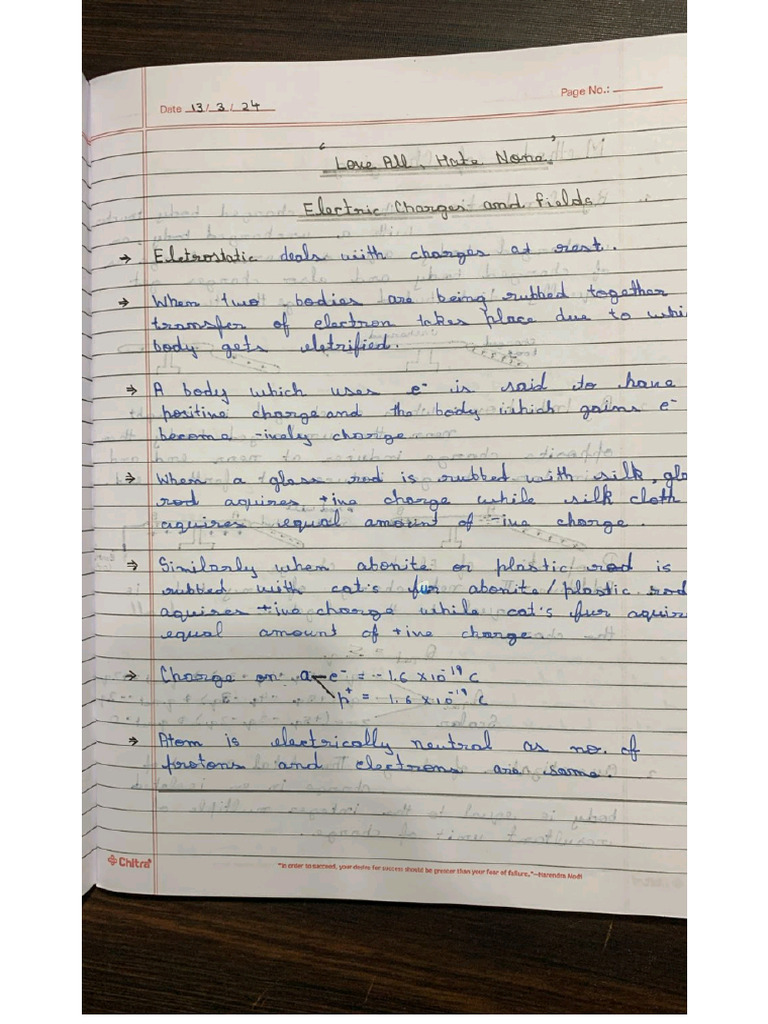 Page No.:
Date 13/3/24
"Love All, Hate None."
Electric Charges and fields
→ Eletrostatic deals with charges at rest.
→ When two bodies are being rubbed together
transfer of electron takes place due to whi
body gets eletrified.
→ A body which uses e⁻ is said to have
positive charge and the body which gains e⁻
become -ively charge
→ When a glass rod is rubbed with silk, gla
rod aquires +ive charge while silk cloth
aquires equal amount of -ive charge.
→ Similarly when abonite or plastic rod is
rubbed with cat's fur abonite/plastic rod
aquires +ive charge while cat's fur aquire
equal amount of +ive charge
→ Charge on a e⁻ = -1.6 × 10⁻¹⁹ C
p⁺ = 1.6 × 10⁻¹⁹ C
→ Atom is electrically neutral as no. of
protons and electrons are same.
Chitra
"In order to succeed, your desire for success should be greater than your fear of failure."–Narendra Modi